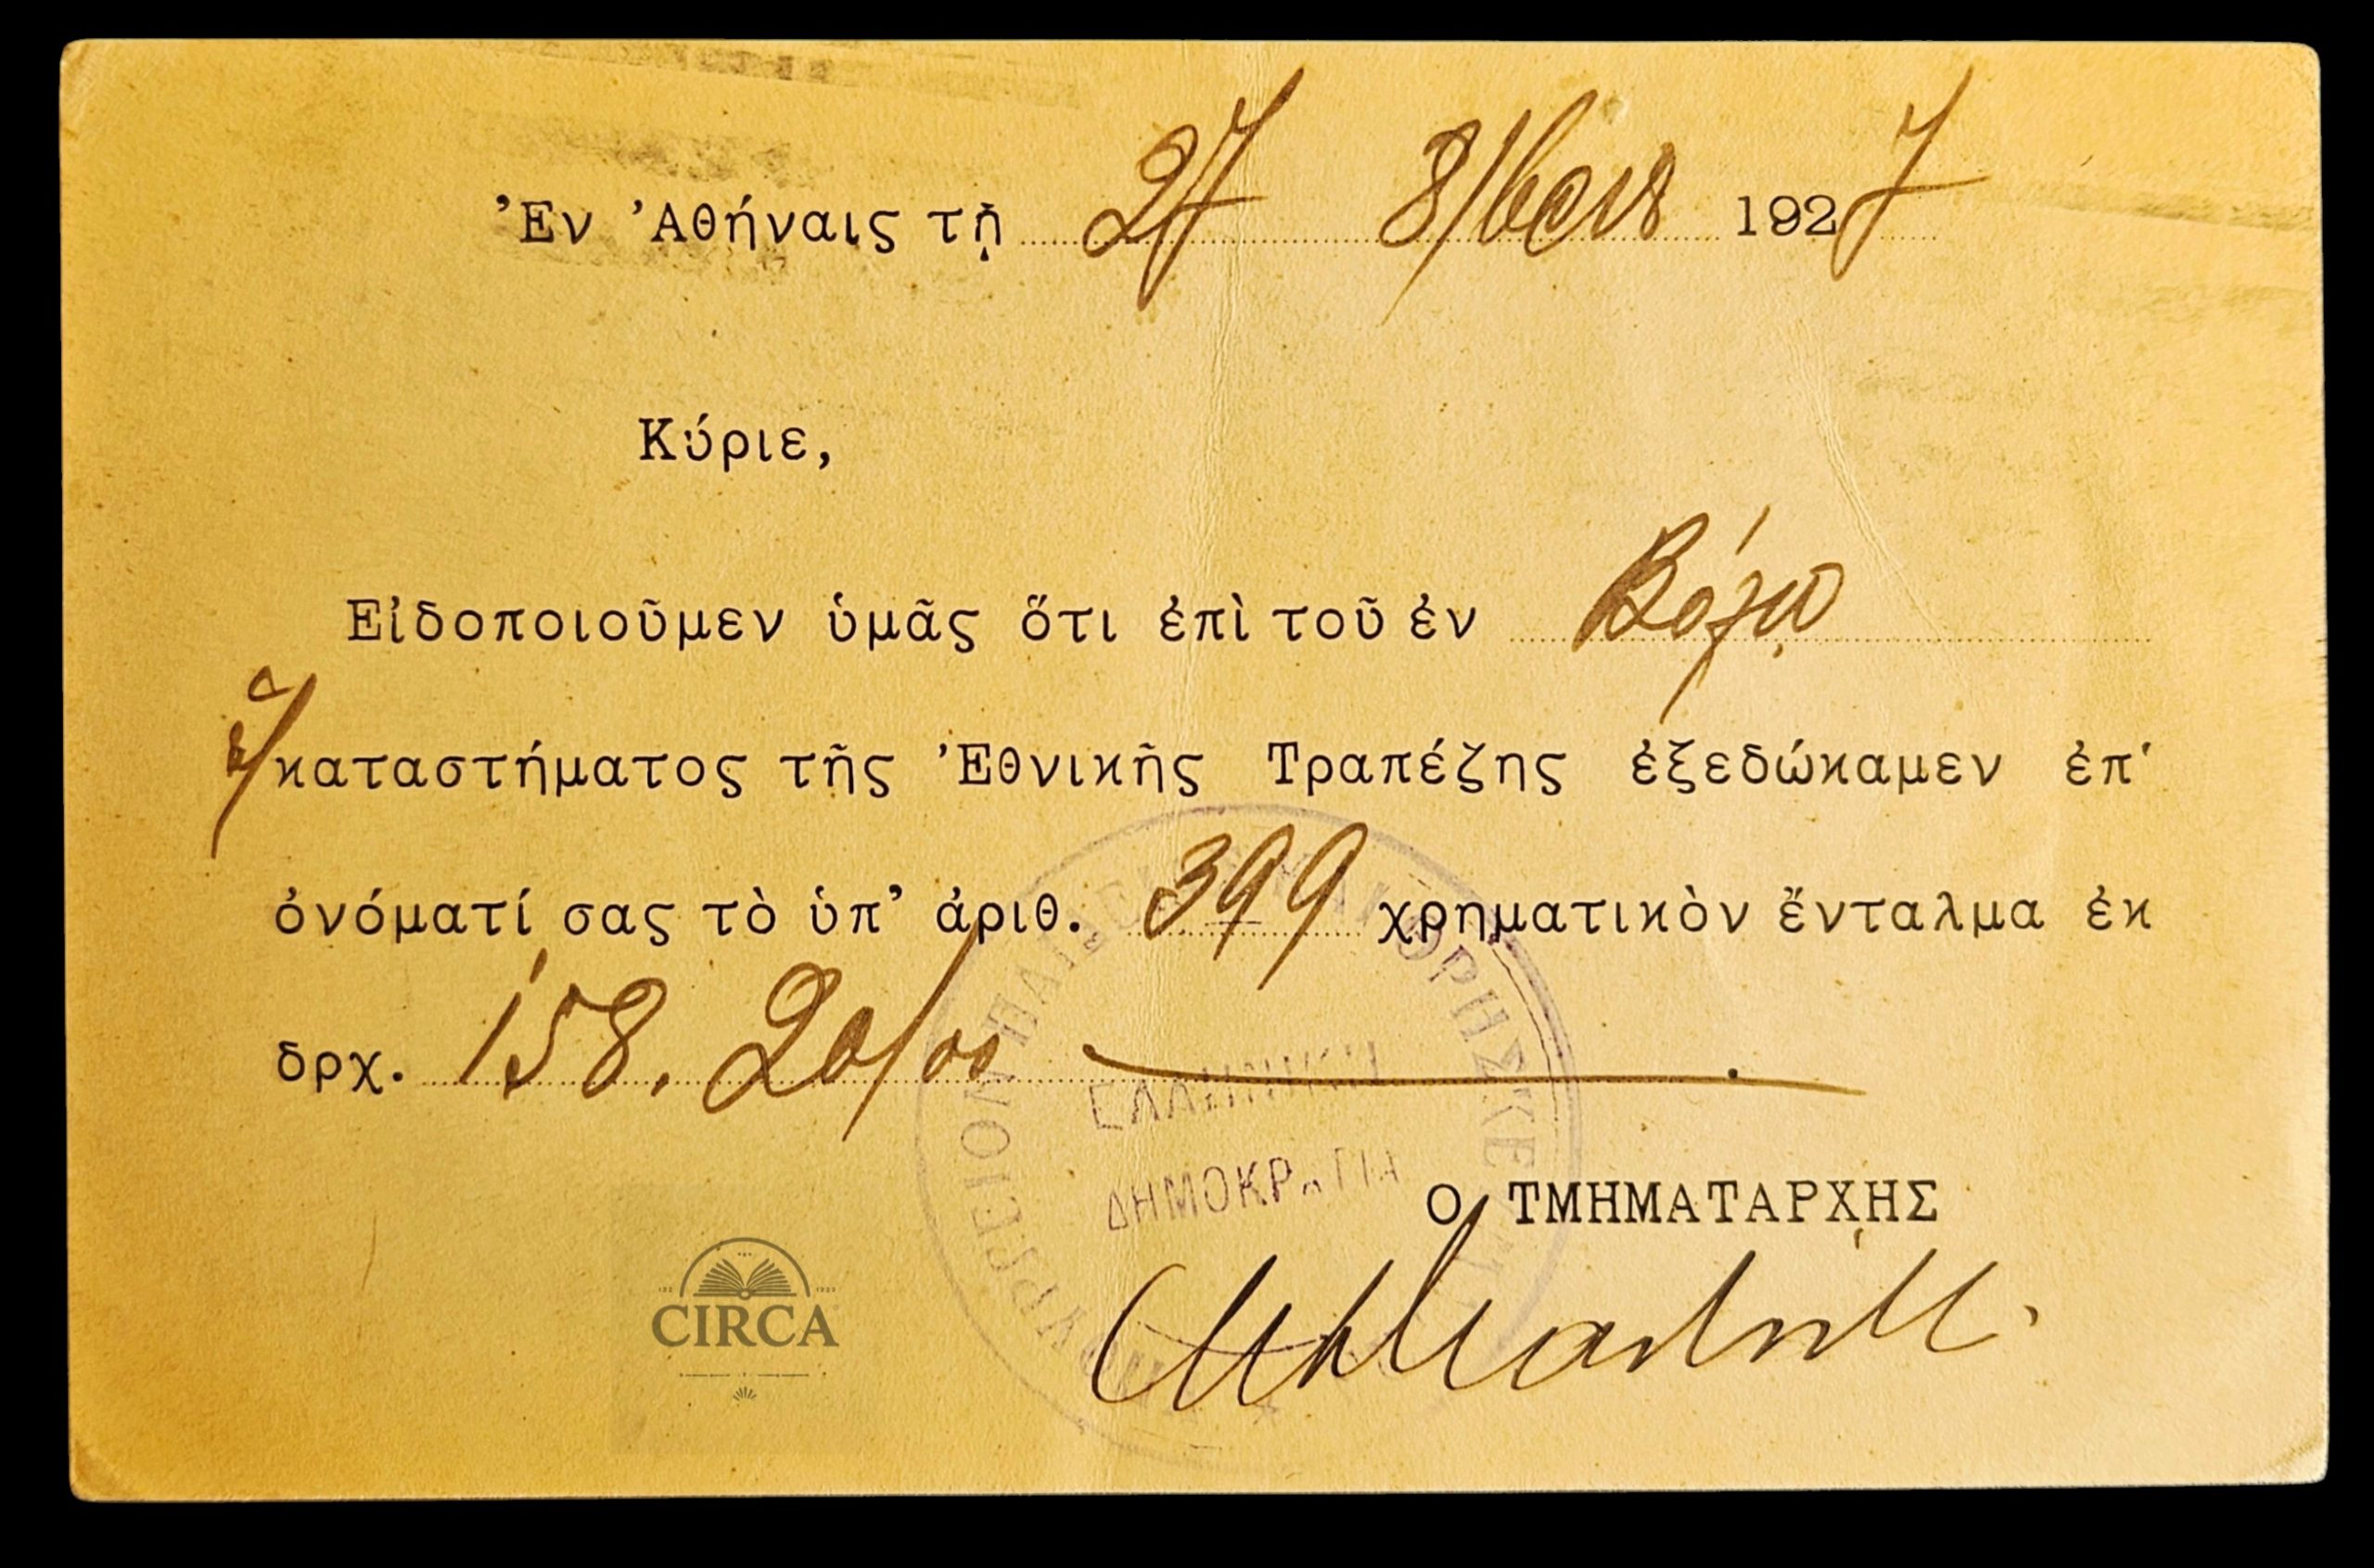 Ἐν Ἀθήναις τῇ 27 8/βρίου 1927
Κύριε,
Εἰδοποιοῦμεν ὑμᾶς ὅτι ἐπὶ τοῦ ἐν Βόλῳ
καταστήματος τῆς Ἐθνικῆς Τραπέζης ἐξεδώκαμεν ἐπ'
ὀνόματί σας τὸ ὑπ' ἀριθ. 399 χρηματικὸν ἔνταλμα ἐκ
δρχ. 158.20/00
Ο ΤΜΗΜΑΤΑΡΧΗΣ
ΕΛΛΗΝΙΚΗ
ΔΗΜΟΚΡΑΤΙΑ
CIRCA